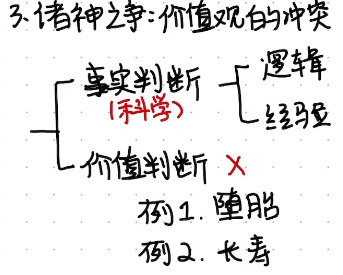 3.诸神之争:价值观的冲突
事实判断
逻辑
(科学)
经验
价值判断 ×
例1.堕胎
例2.长寿